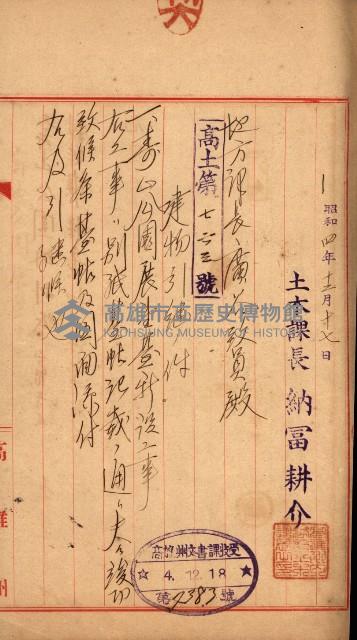 昭和四年十二月十七日
土木課長 納富耕介
地方課長 廣谷致員殿
高土第七六三號
建物引継件
一、壽山公園展望台新設工事
右工事ハ別紙台帳記載ノ通リ夫々竣功
致候条台帳及図面添付
右及引継候也
高雄州文書課收受
4.12.18
第7383號
高雄市立歷史博物館
KAOHSIUNG MUSEUM OF HISTORY
高雄州